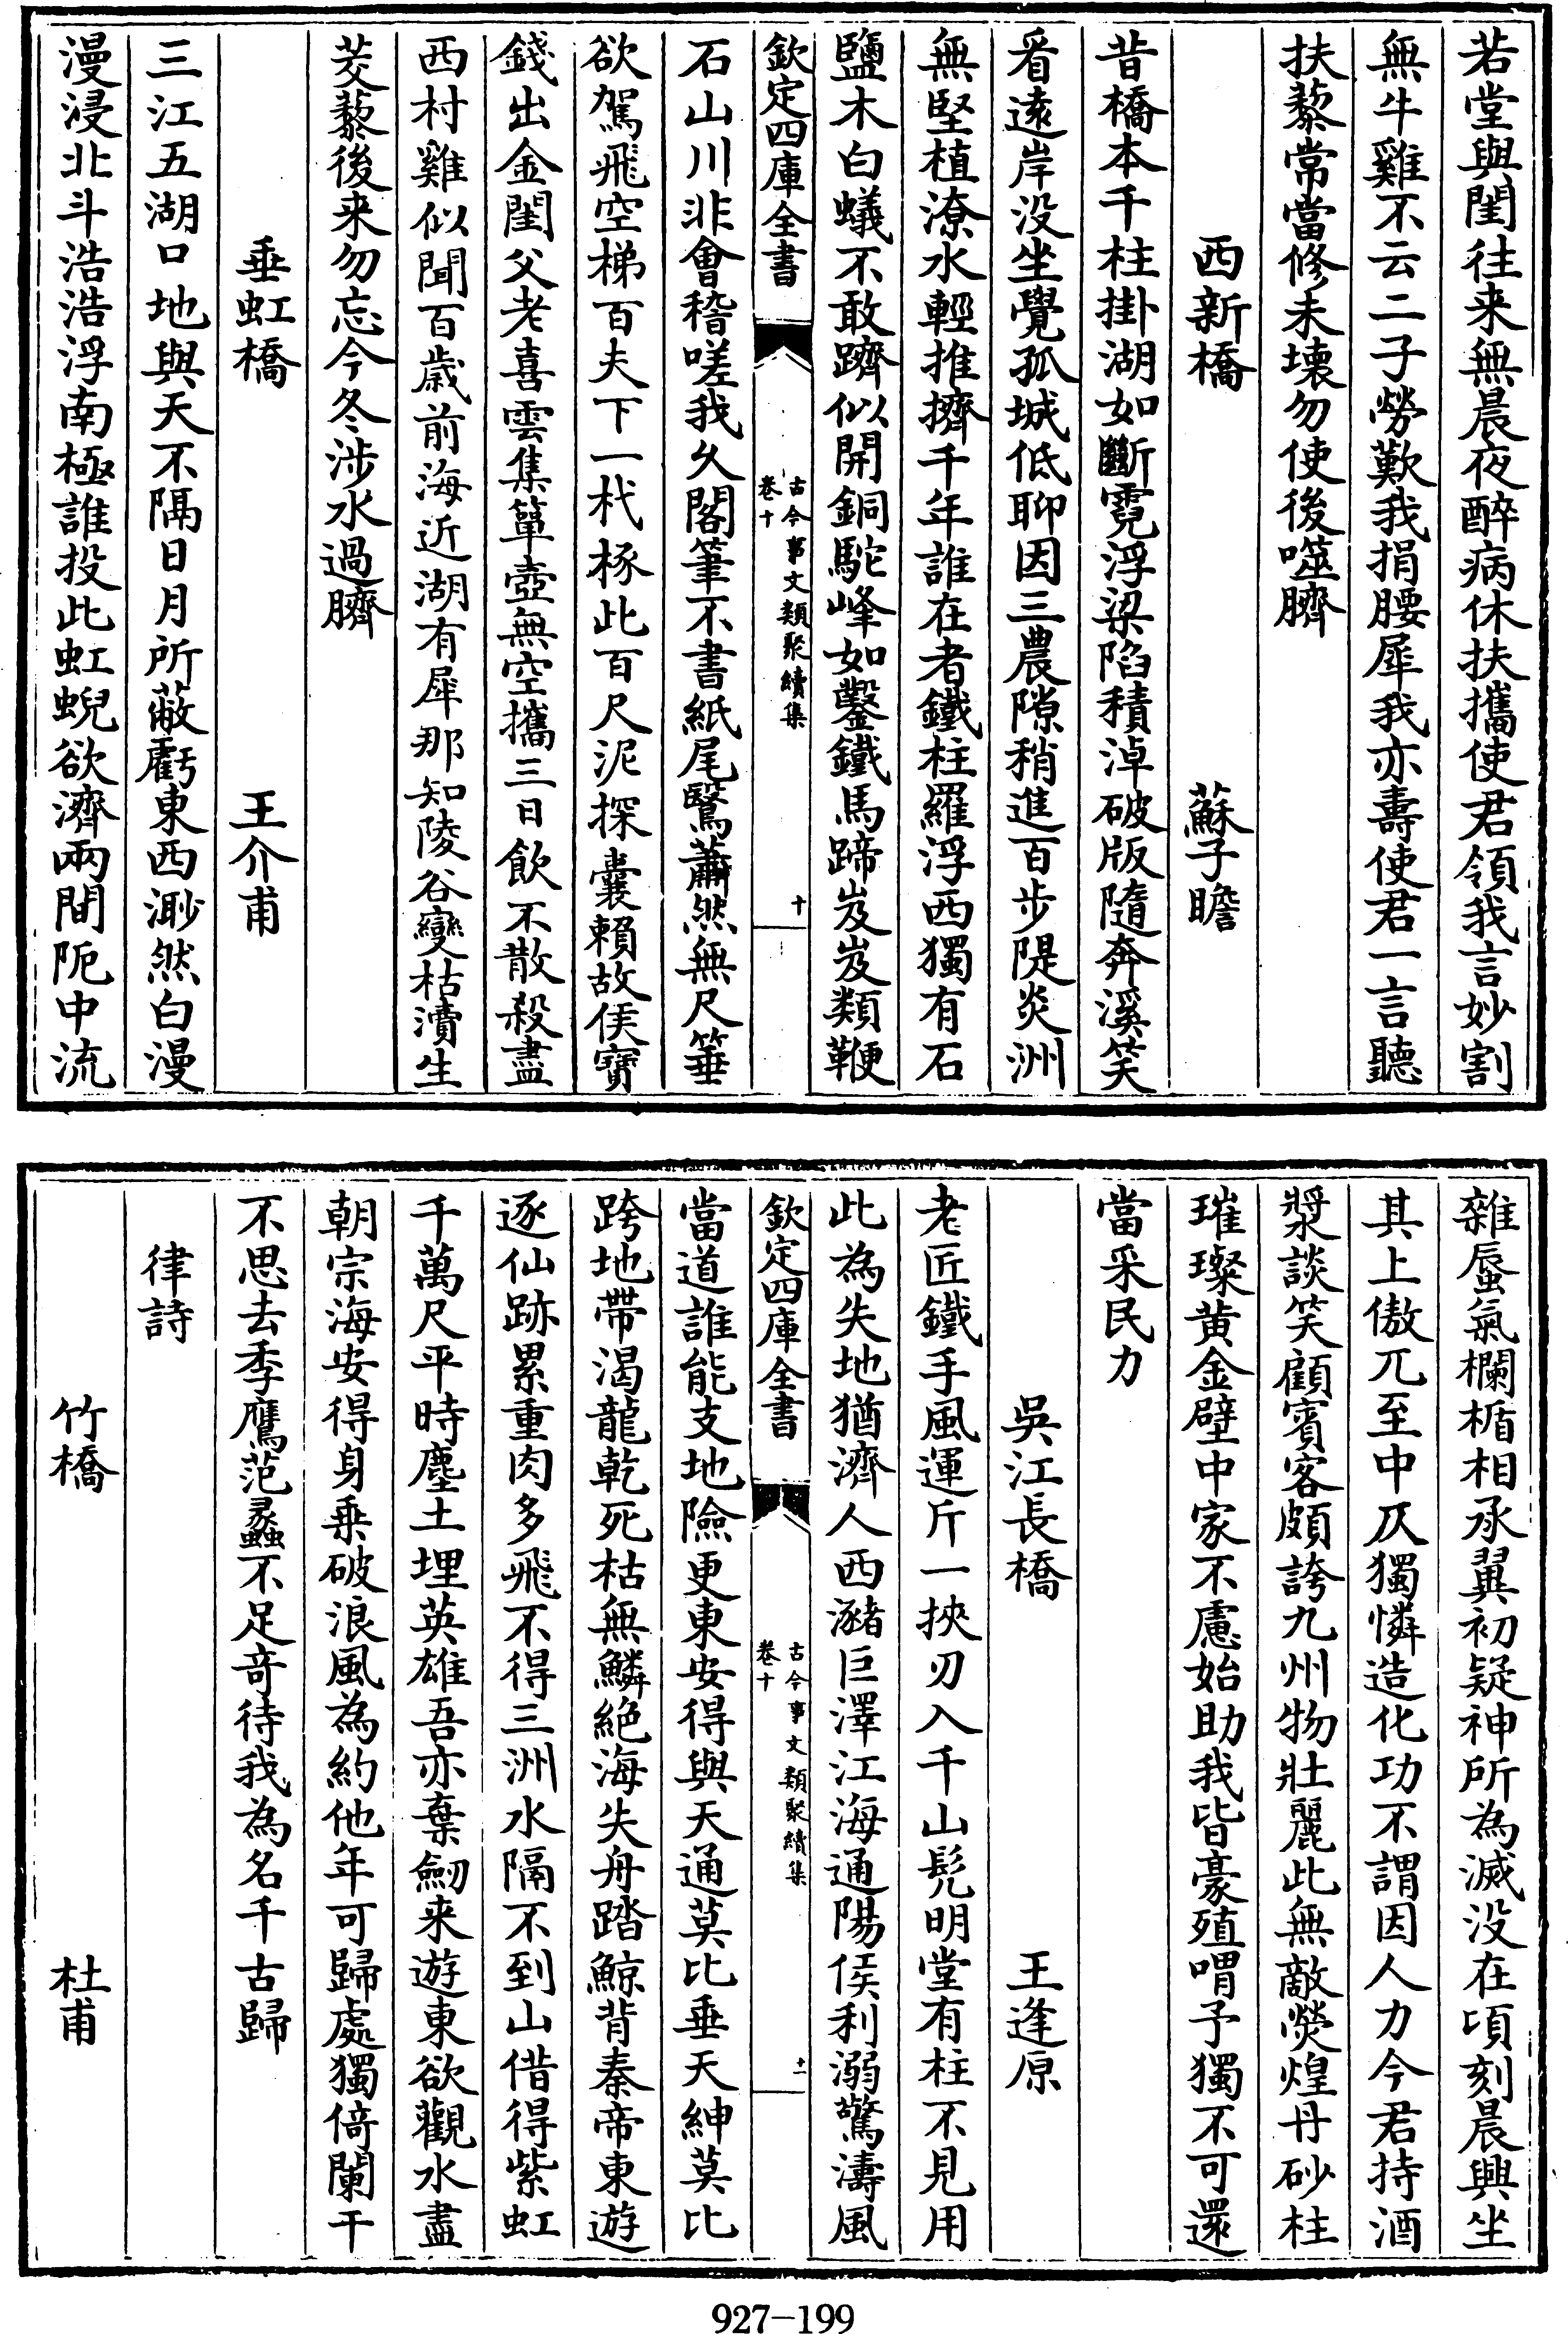 若堂與閨往来無晨夜醉病休扶攜使君領我言妙割
無牛雞不云二子勞歎我捐腰犀我亦壽使君一言聽
扶藜常當修未壊勿使後噬臍
西新橋　蘇子瞻
昔橋本千柱掛湖如斷霓浮梁陷積淖破版隨奔溪笑
看遠岸没坐覺孤城低聊因三農隙稍進百步隄炎洲
無堅植潦水輕推擠千年誰在者鐵柱羅浮西獨有石
鹽木白蟻不敢躋似開銅駝峰如鑿鐵馬蹄岌岌類鞭
欽定四庫全書　古今事文類聚續集　卷十　十
石山川非會稽嗟我久閣筆不書紙尾鷖蕭然無尺箠
欲駕飛空梯百夫下一杙椓此百尺泥探囊賴故侯寳
錢出金閨父老喜雲集簞壺無空攜三日飲不散殺盡
西村雞似聞百歳前海近湖有犀那知陵谷變枯瀆生
茭藜後来勿忘今冬涉水過臍
垂虹橋　王介甫
三江五湖口地與天不隔日月所蔽虧東西渺然白漫
漫浸北斗浩浩浮南極誰投此虹蜺欲濟兩間阨中流
雜蜃氣欄楯相承翼初疑神所為滅没在頃刻晨興坐
其上傲兀至中仄獨憐造化功不謂因人力今君持酒
漿談笑顧賓客頗誇九州物壯麗此無敵熒煌丹砂柱
璀璨黄金壁中家不慮始助我皆豪殖喟予獨不可還
當采民力
吳江長橋　王逢原
老匠鐵手風運斤一挾刃入千山髡明堂有柱不見用
此為失地猶濟人西瀦巨澤江海通陽侯利溺驚濤風
欽定四庫全書　古今事文類聚續集　卷十　十一
當道誰能支地險更東安得與天通莫比垂天紳莫比
跨地帶渴龍乾死枯無鱗絶海失舟踏鯨背秦帝東遊
逐仙跡累重肉多飛不得三洲水隔不到山借得紫虹
千萬尺平時塵土埋英雄吾亦棄劒来遊東欲觀水盡
朝宗海安得身乗破浪風為約他年可歸處獨倚闌干
不思去季鷹范蠡不足竒待我為名千古歸
律詩
竹橋　杜甫
927-199